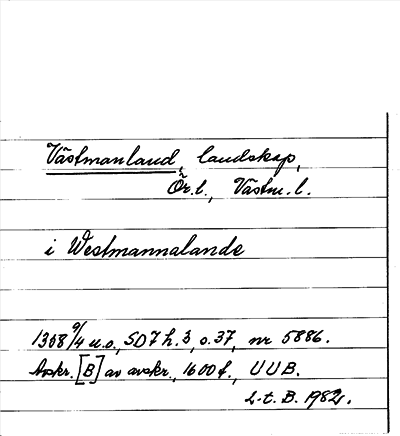 Västmanland, landskap,
Ör.l., Västm.l.
i Westmannalande
1358 9/4 u.o., SD 7 h.3, s.37, nr 5886.
Avskr. [B] av avskr., 1600 f., UUB.
L-t. B. 1982.